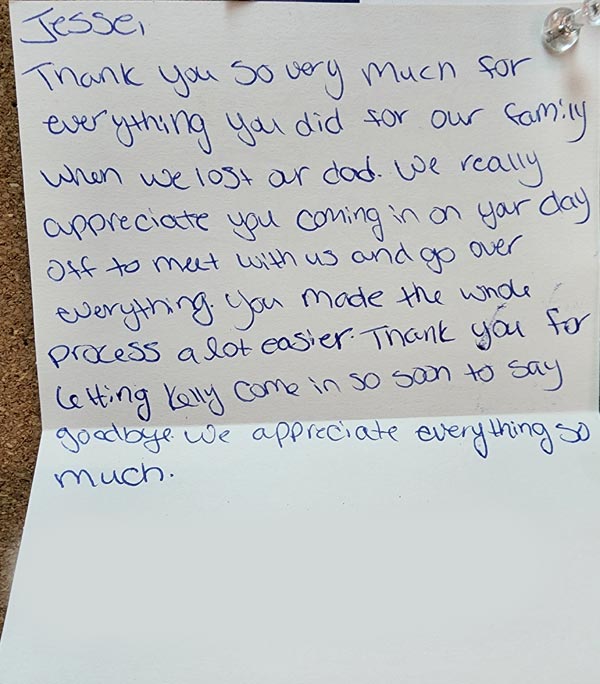 Jesse,
Thank you so very much for
everything you did for our family
when we lost our dad. We really
appreciate you coming in on your day
off to meet with us and go over
everything. You made the whole
process a lot easier. Thank you for
letting Kelly come in so soon to say
goodbye. We appreciate everything so
much.